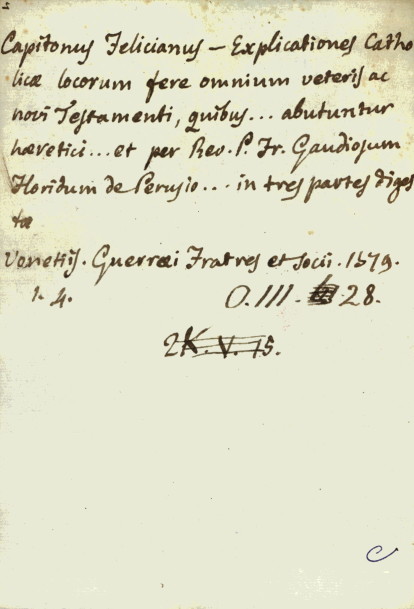 Capitonus Felicianus — Explicationes Catho
licæ locorum fere omnium veteris ac
novi Testamenti, quibus... abutuntur
hæretici... et per Rev. P. Fr. Gaudiosum
Floridum de Perusio... in tres partes diges
tæ
Venetijs. Guerræi Fratres et Socii. 1579.
1. 4. O. III. 28.
2K. V. 15.
C